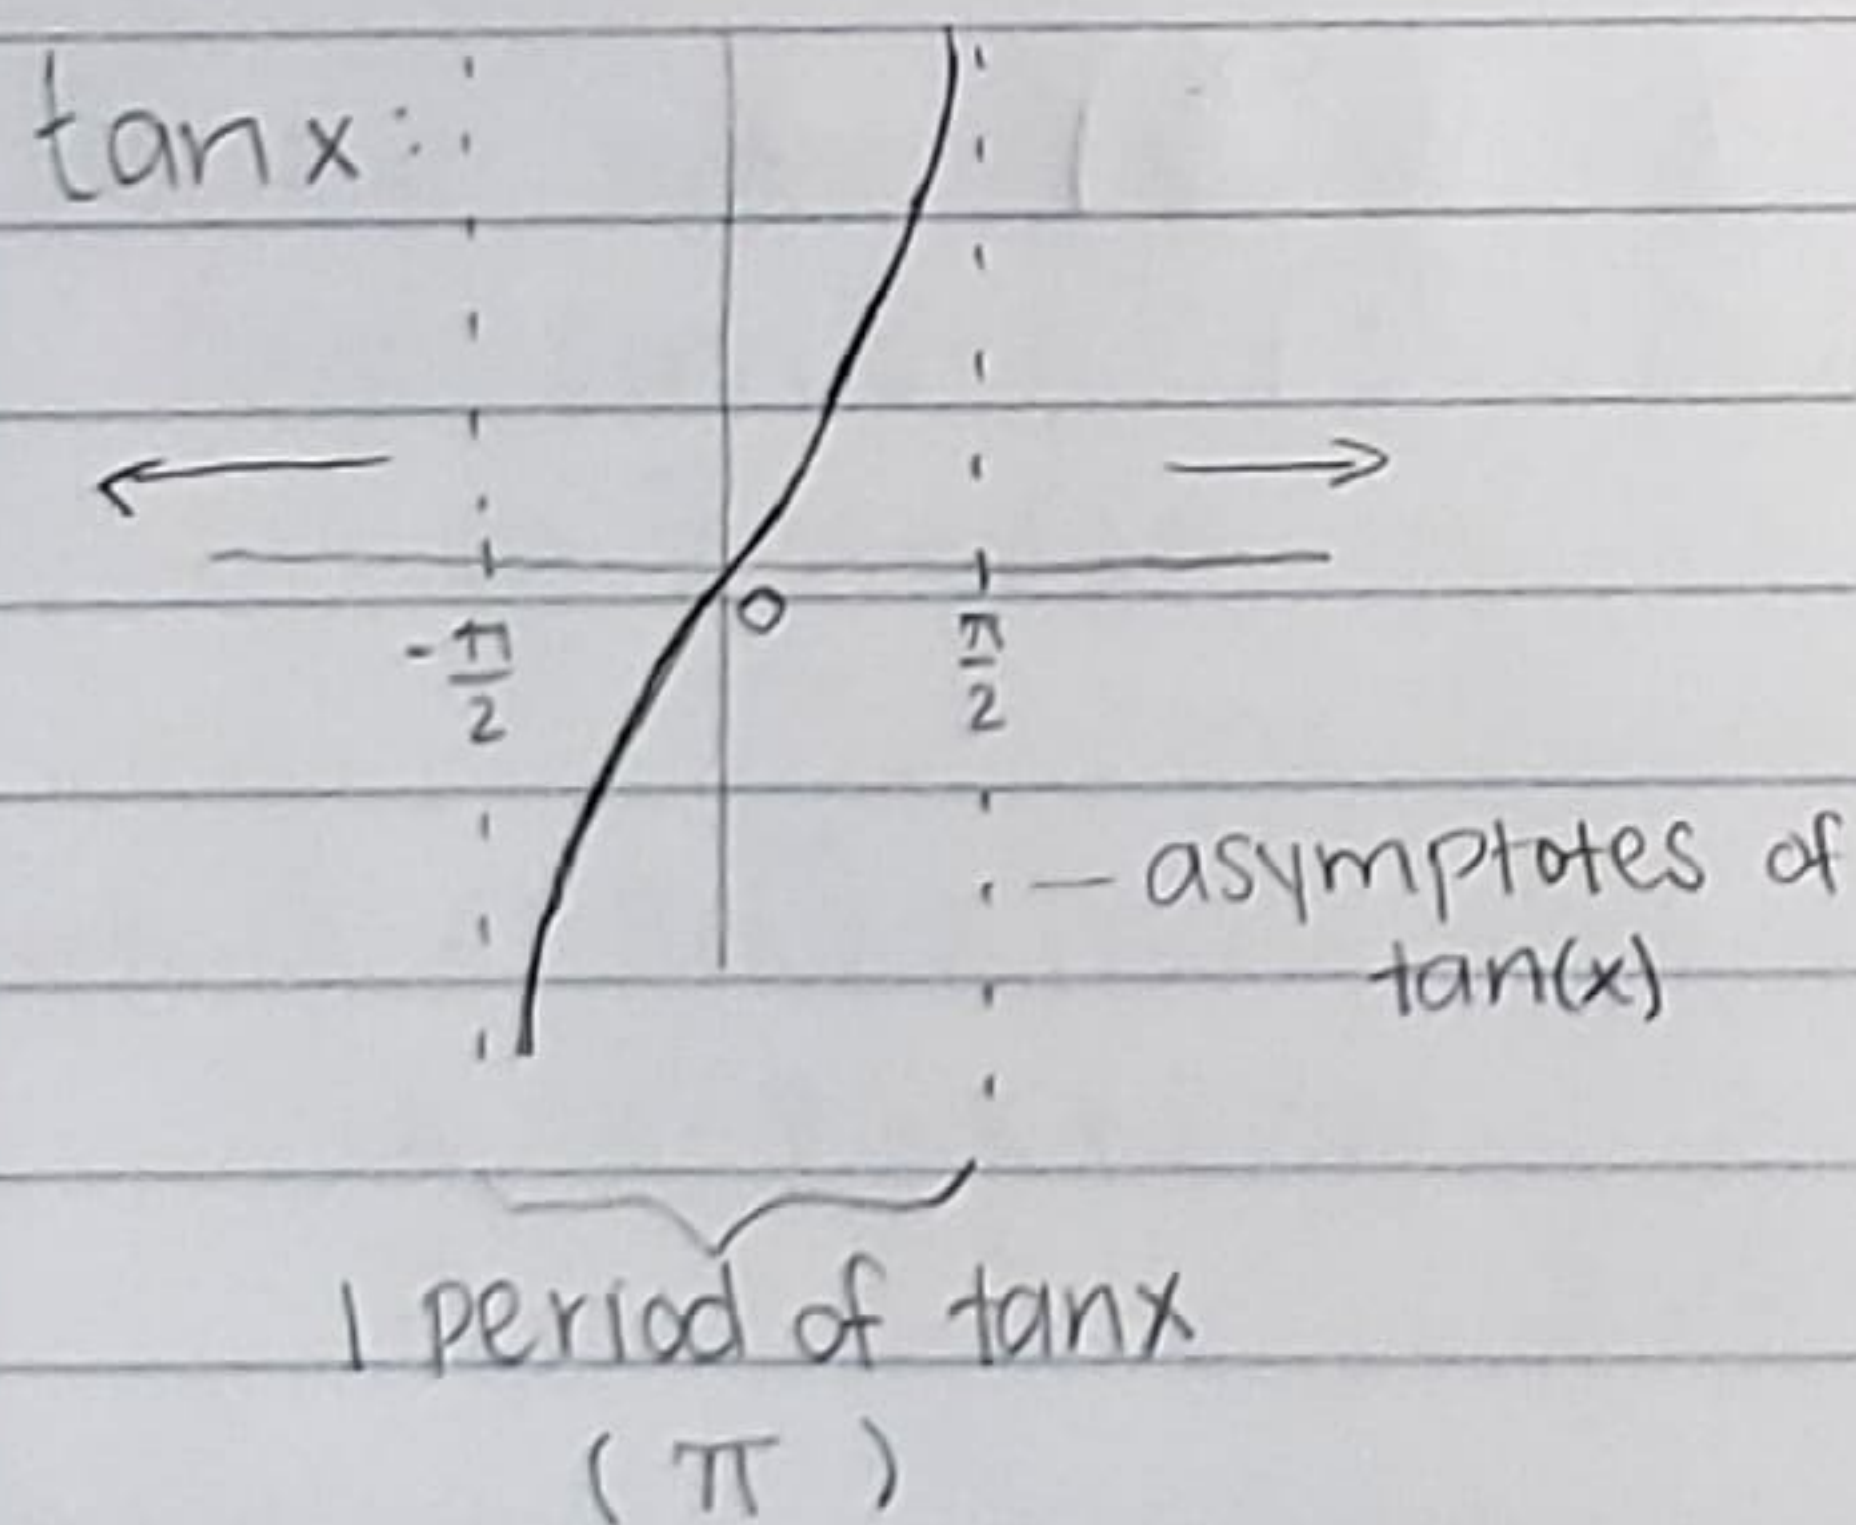 tan x :
0
-π/2
π/2
— asymptotes of
tan(x)
1 period of tanx
( π )